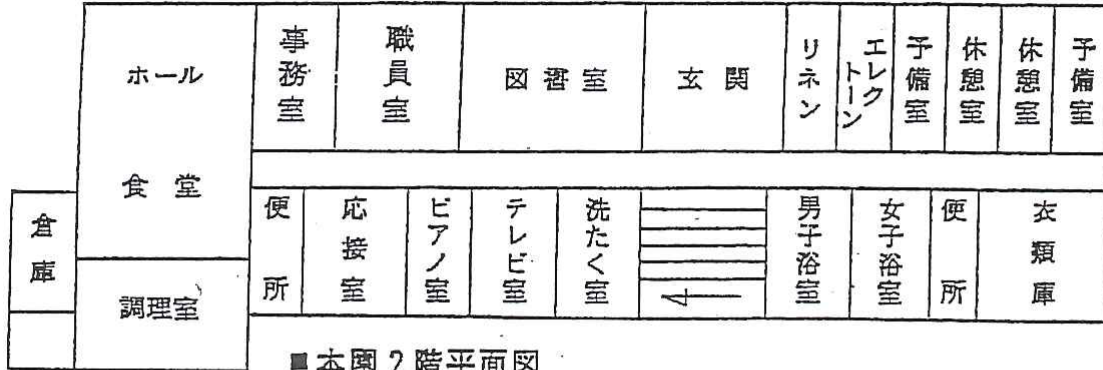 ホール
食堂
事務室
職員室
図書室
玄関
リネン
エレクトーン
予備室
休憩室
休憩室
予備室
倉庫
調理室
便所
応接室
ピアノ室
テレビ室
洗たく室
男子浴室
女子浴室
便所
衣類庫
■本園2階平面図